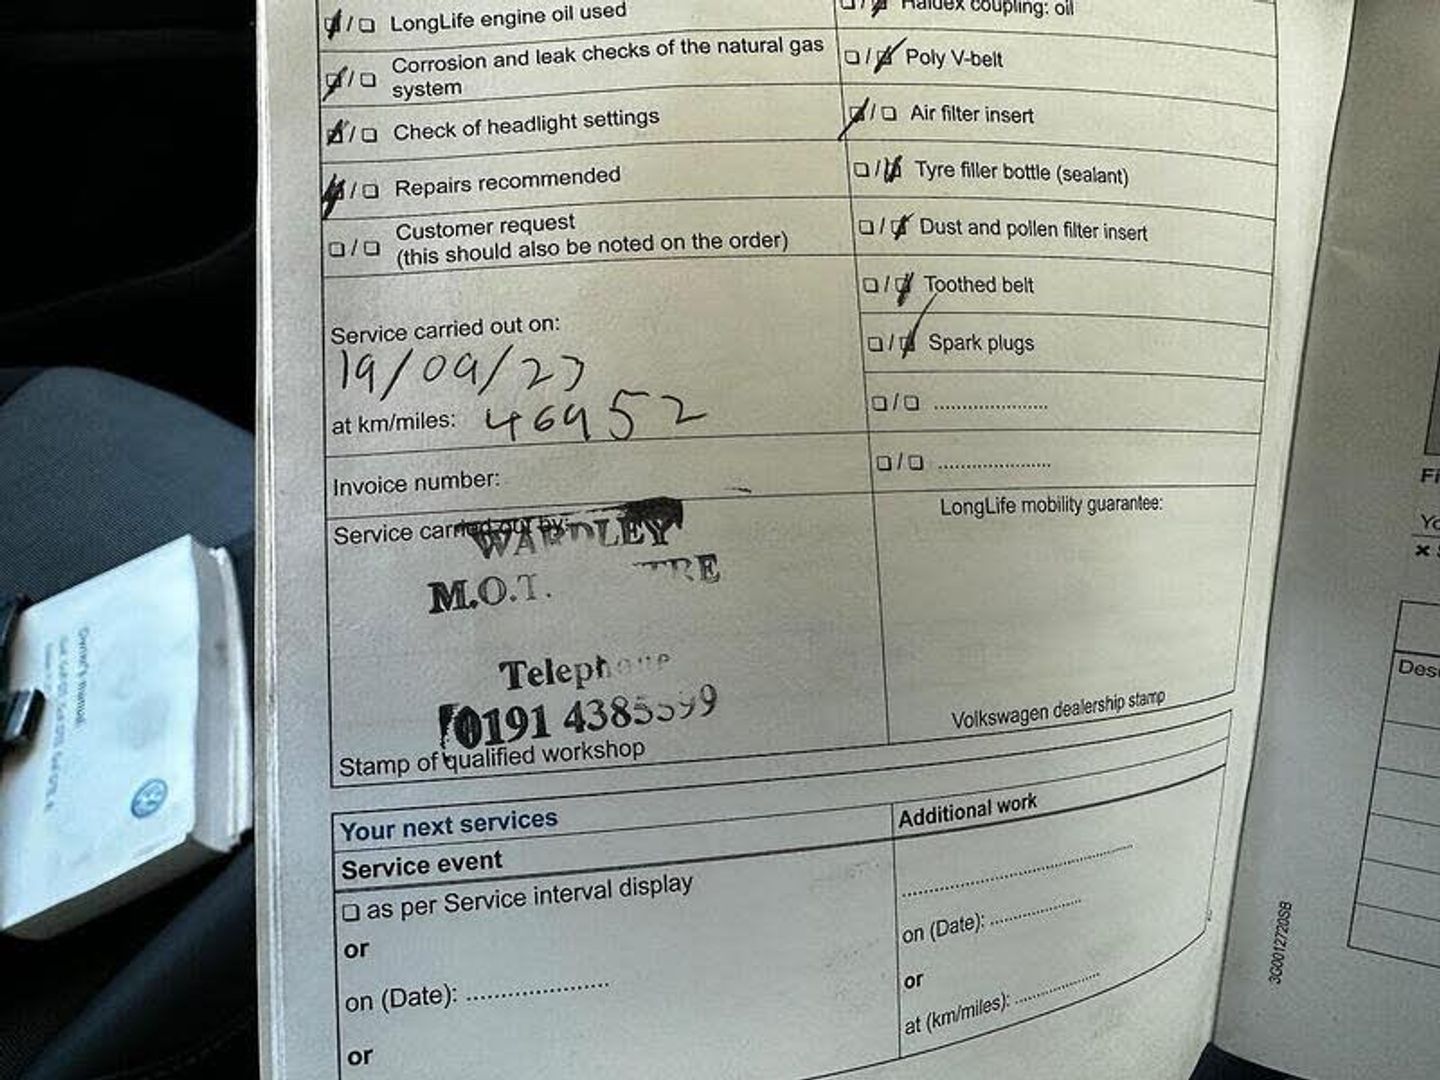 LongLife engine oil used
Corrosion and leak checks of the natural gas
system
Check of headlight settings
Repairs recommended
Customer request
(this should also be noted on the order)
Service carried out on:
19/09/23
at km/miles: 46952
Invoice number:
Service carried out by:
WARDLEY
M.O.T.
Telephone
0191 4385599
Stamp of qualified workshop
Haldex coupling: oil
Poly V-belt
Air filter insert
Tyre filler bottle (sealant)
Dust and pollen filter insert
Toothed belt
Spark plugs
LongLife mobility guarantee:
Volkswagen dealership stamp
Your next services
Service event
as per Service interval display
or
on (Date):
or
Additional work
on (Date):
or
at (km/miles):
3G0012720SB
Owner's manual